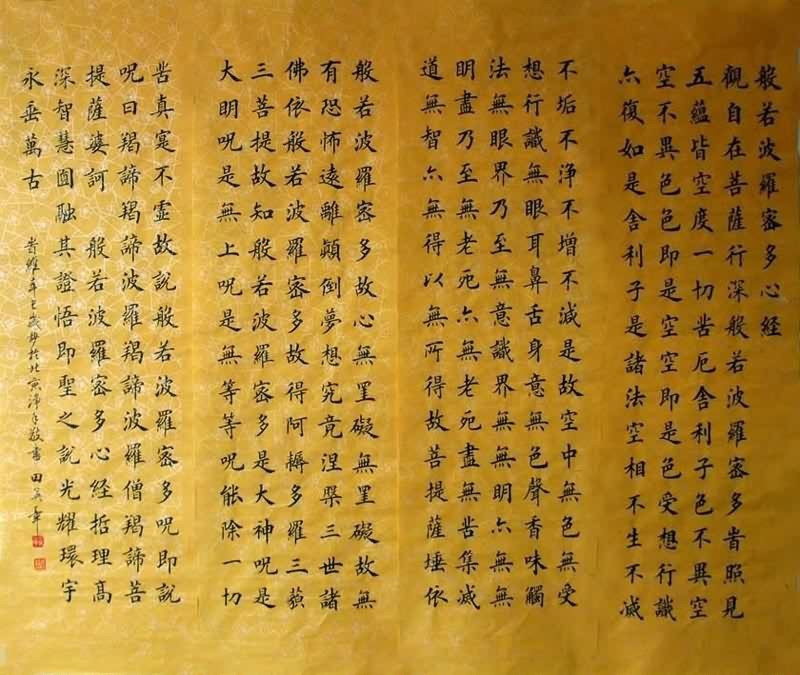 般若波羅密多心経
觀自在菩薩行深般若波羅密多旹照見
五蘊皆空度一切苦厄舎利子色不異空
空不異色色即是空空即是色受想行識
亦復如是舎利子是諸法空相不生不滅
不垢不浄不增不減是故空中無色無受
想行識無眼耳鼻舌身意無色聲香味觸
法無眼界乃至無意識界無無明亦無無
明盡乃至無老死亦無老死盡無苦集滅
道無智亦無得以無所得故菩提薩埵依
般若波羅密多故心無罣礙無罣礙故無
有恐怖遠離顛倒夢想究竟涅槃三世諸
佛依般若波羅密多故得阿耨多羅三藐
三菩提故知般若波羅密多是大神呪是
大明呪是無上呪是無等等呪能除一切
苦真寔不虛故說般若波羅密多呪即説
呪曰羯諦羯諦波羅羯諦波羅僧羯諦菩
提薩婆訶 般若波羅密多心經哲理高
深智慧圓融其證悟即聖之說光耀環宇
永垂萬古
旹維辛巳歲 於北京 敬書 田